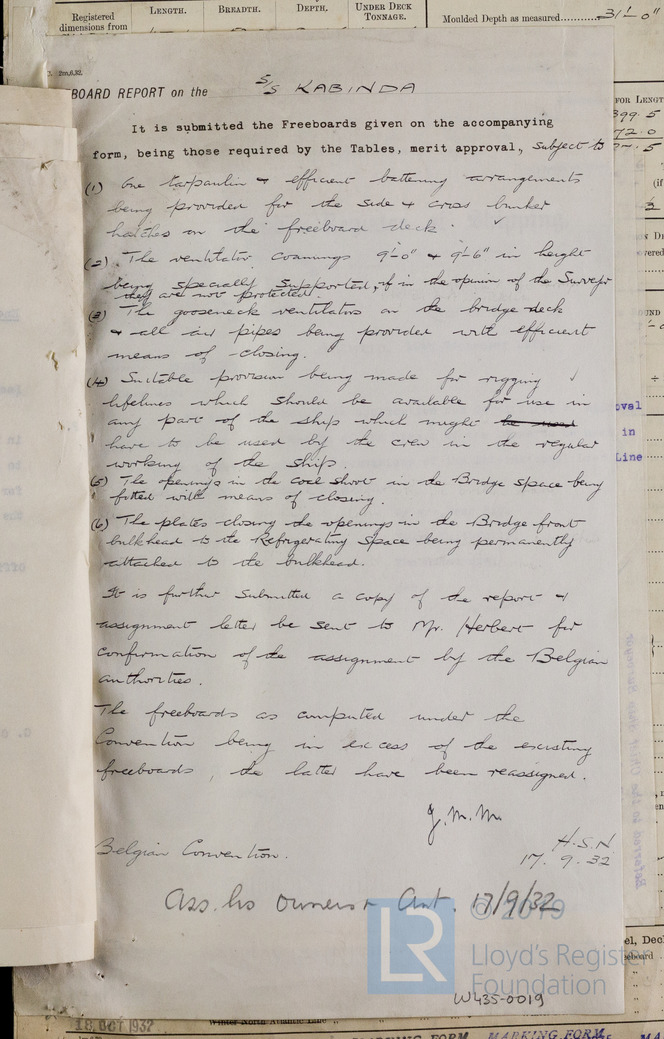 Registered
dimensions from
LENGTH.
BREADTH.
DEPTH.
UNDER DECK
TONNAGE.
Moulded Depth as measured..........31'-0"
2m,6,32.
BOARD REPORT on the S/S KABINDA
It is submitted the Freeboards given on the accompanying
form, being those required by the Tables, merit approval, subject to
(1) One tarpaulin & efficient battening arrangements
being provided for the side & cross bunker
hatches on the freeboard deck.
(2). The ventilator coamings 9'-0" & 9'-6" in height
being specially supported, if in the opinion of the Surveyor
they are not protected.
(3) The gooseneck ventilators on the bridge deck
& all air pipes being provided with efficient
means of closing.
(4) Suitable provision being made for rigging
lifelines which should be available for use in
any part of the ship which might be used
have to be used by the crew in the regular
working of the ship.
(5) The openings in the coal shoot in the Bridge space being
fitted with means of closing.
(6) The plates closing the openings in the Bridge front
bulkhead to the Refrigerating Space being permanently
attached to the bulkhead.
It is further submitted a copy of the report &
assignment letter be sent to Mr. Herbert for
confirmation of the assignment by the Belgian
authorities.
The freeboards as computed under the
Convention being in excess of the existing
freeboards, the latter have been reassigned.
J.M.M.
H.S.N
17.9.32
Belgian Convention.
Ass. lrs owners & Ant. 17/9/32
© 2019
LR
Lloyd's Register
Foundation
W435-0019
18 OCT 1932
FOR LENGT
399.5
72.0
oval
in
Line
Referred to the Chief Ship Surveyor
MARKING FORM